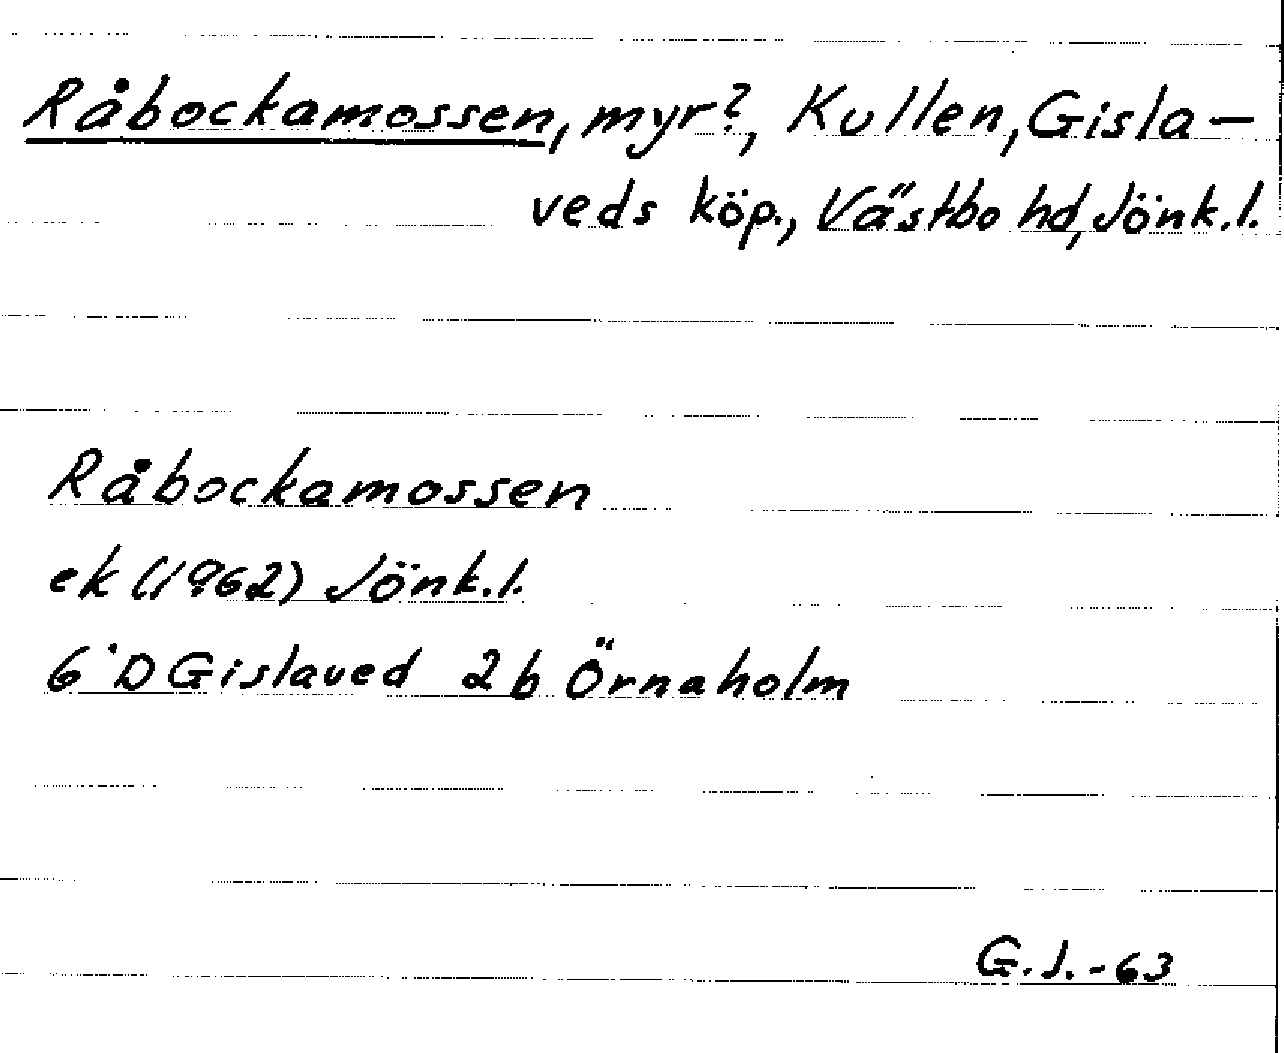 Råbockamossen, myr?, Kullen, Gisla-
veds köp., Västbo hd, Jönk.l.
Råbockamossen
ek (1962) Jönk.l.
6 D Gislaved 2b Örnaholm
G.J.-63